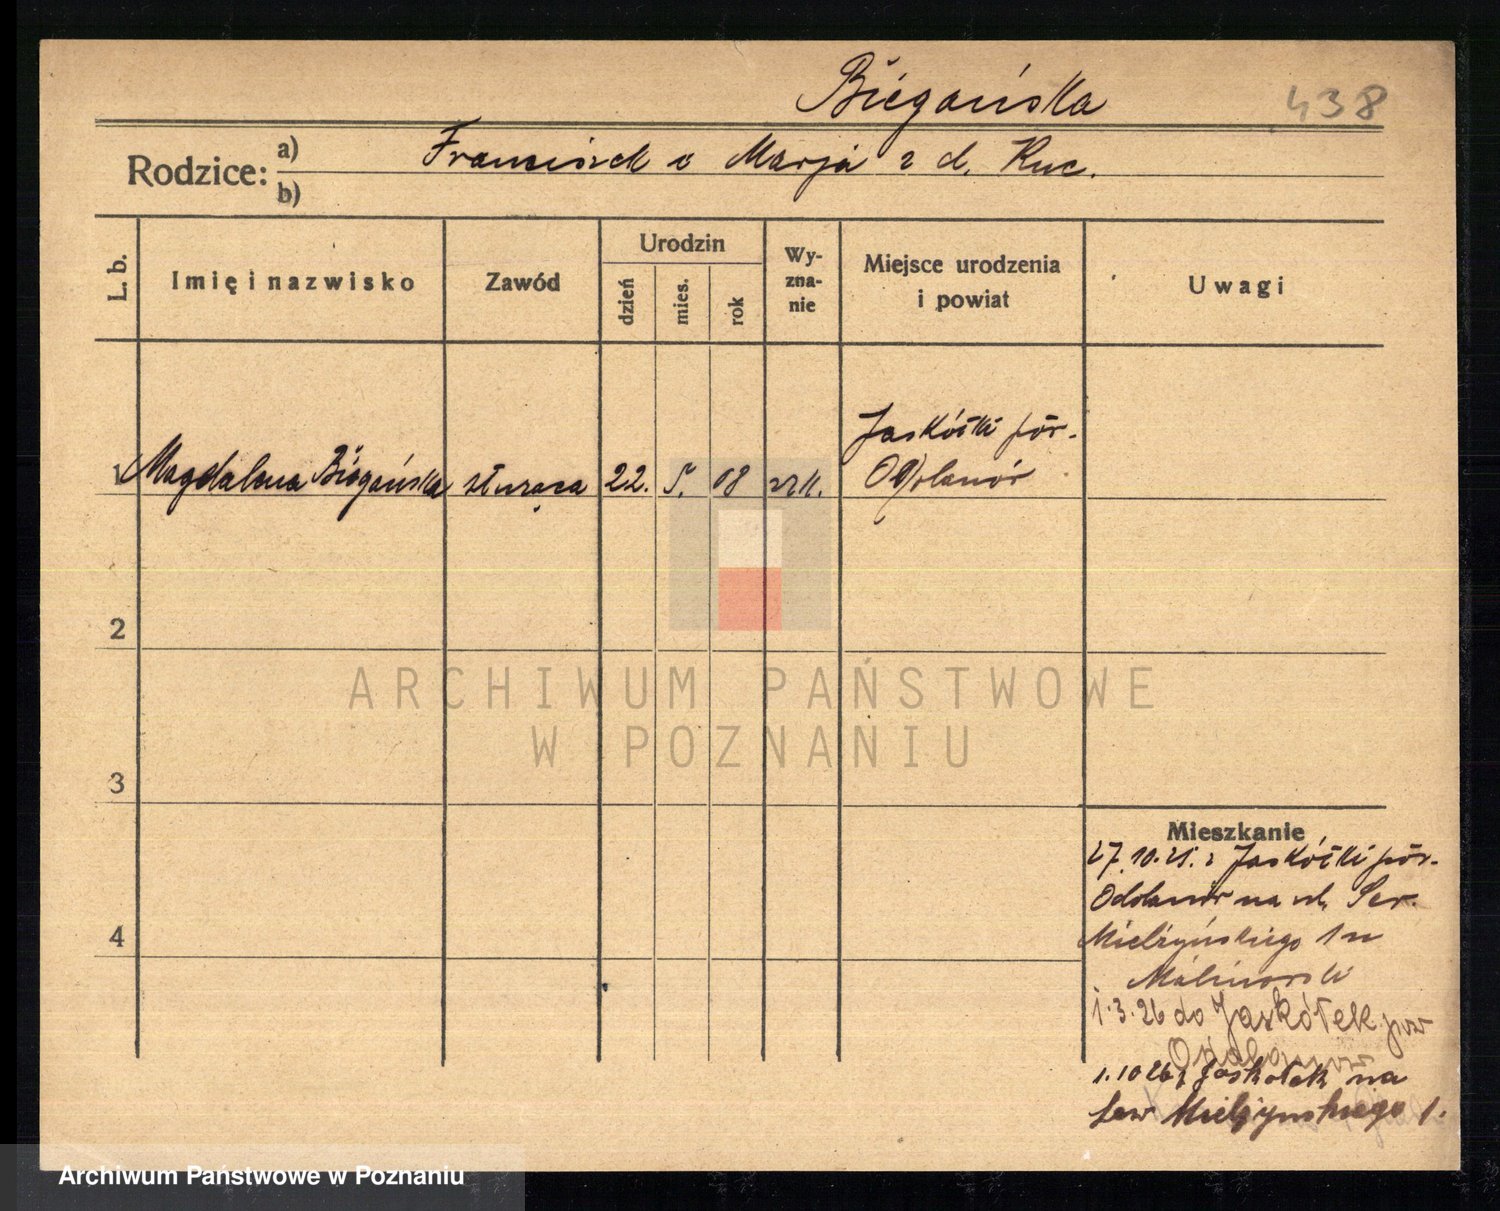 Biegańska
438
Rodzice: a) Franciszek i Marja z d. Kuc.
b)
L. b.
Imię i nazwisko
Zawód
Urodzin
dzień
mies.
rok
Wy-
zna-
nie
Miejsce urodzenia
i powiat
Uwagi
1 Magdalena Biegańska służąca 22. 5. 08 rzk. Jaskółki pow.
Odolanów
2
3
4
Mieszkanie
27.10.25. z Jaskółki pow.
Odolanów na ul. Sew.
Mielżyńskiego 1 u
1.3.26 do Jaskółek pow
Odolanów
1.10 26 z Jaskółek na
Sew Mielżyńskiego 1.
ARCHIWUM PAŃSTWOWE
W POZNANIU
Archiwum Państwowe w Poznaniu